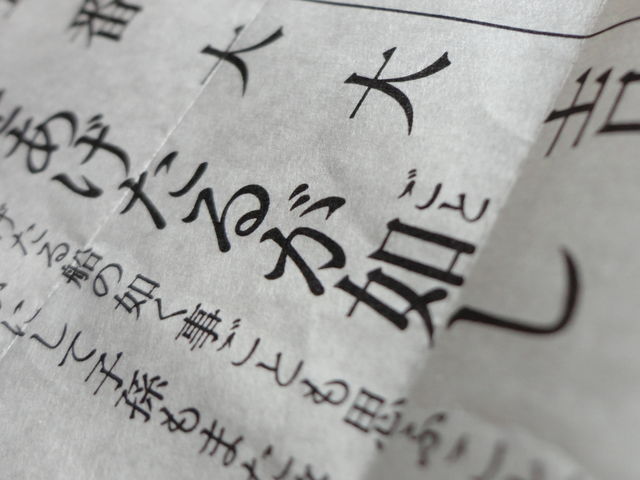 番 大 大 吉
あげたるが如し
ごと
げたる船の如く事ごとも思ふこ
にして子孫もまた